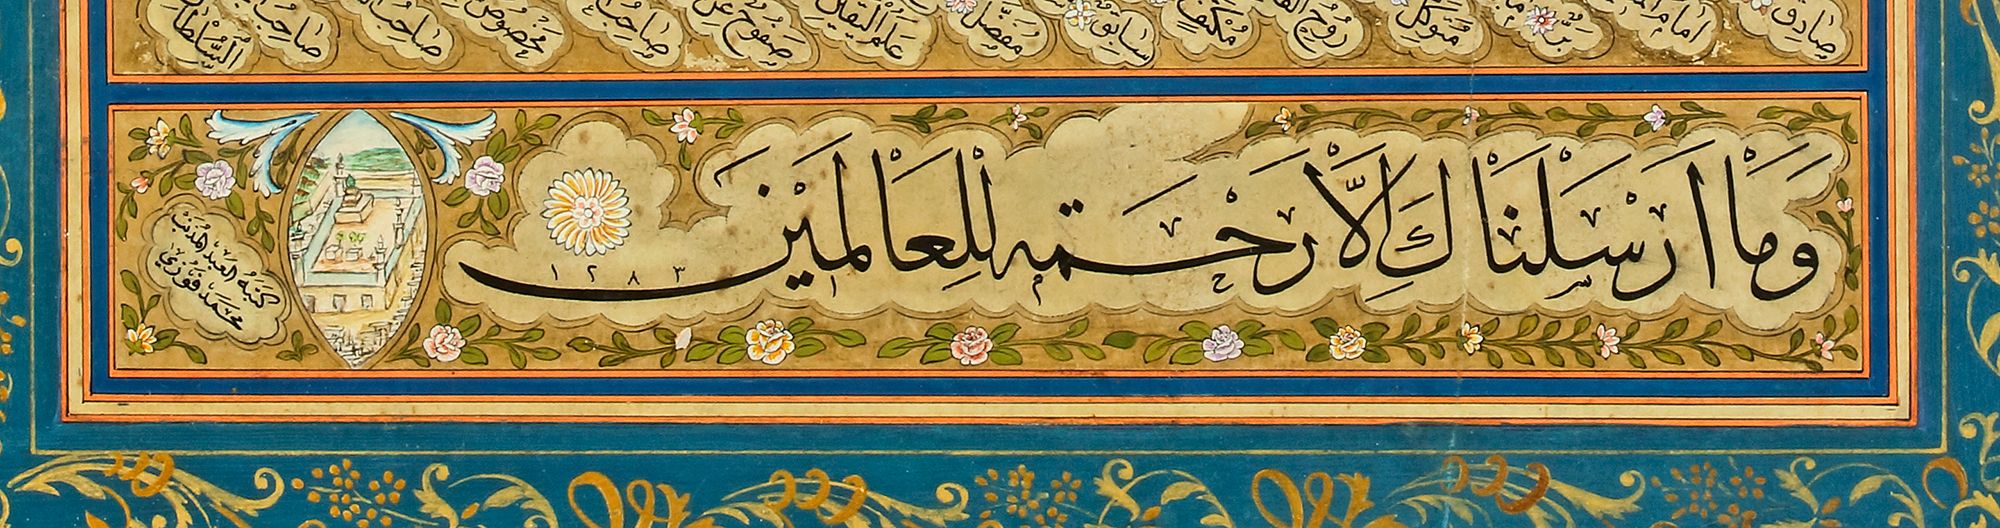 صادق امام متوكل روح مكفى سابق مفضل علم اليقين صفوح عن مخصوص صاحب صاحب صاحب السلطان
وَمَا أَرْسَلْنَاكَ إِلَّا رَحْمَةً لِلْعَالَمِينَ
١٢٨٣
كتبه العبد المذنب
محمد فوزي